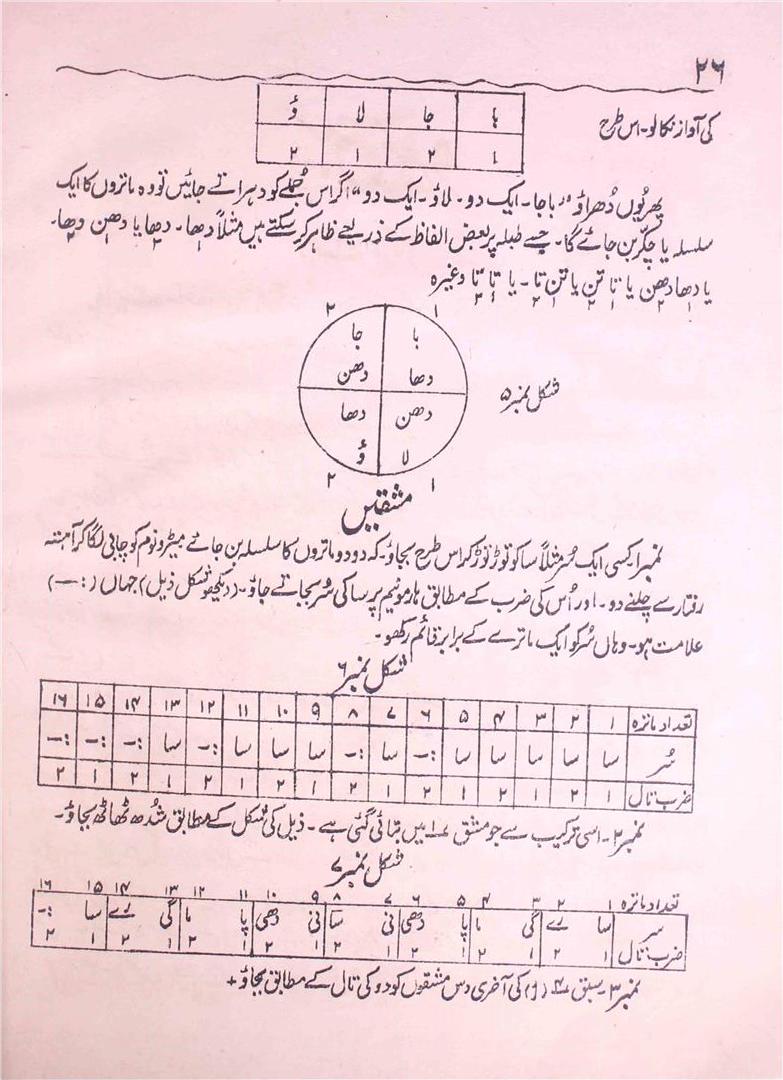 ۲۶
کی آواز نکالو۔ اس طرح
با جا لا ؤ
۱ ۲ ۱ ۲
پھر یُوں دُھراؤ "باجا۔ ایک دو۔ لاؤ۔ ایک دو" اگر اس جُملے کو دہراتے جائیں تو وہ ماتروں کا ایک
سلسلہ یا چکّر بن جائے گا۔ جسے طبلہ پر بعض الفاظ کے ذریعے ظاہر کر سکتے ہیں مثلاً دھا۔ دھا یا دھن دھا۔
۱ ۲ ۱ ۲
یا دھا دھن یا تا تن یا تن تا۔ یا تا تا وغیرہ
۱ ۲ ۱ ۲ ۱ ۲ ۱ ۲
۲ ۱
جا با
دھن دھا
شکل نمبر ۵
دھا دھن
ؤ لا
۲ ۱
مشقیں
نمبر ۱۔ کسی ایک سُر مثلاً سا کو توڑ توڑ کر اس طرح بجاؤ۔ کہ دو دو ماتروں کا سلسلہ بن جائے میٹرونوم کو چابی لگا کر آہستہ
رفتار سے چلنے دو۔ اور اُس کی ضرب کے مطابق ہارمونیم پر سا کی سُر بجاتے جاؤ۔ (دیکھو شکل ذیل) جہاں (:—)
علامت ہو۔ وہاں سُر کو ایک ماترے کے برابر قائم رکھو۔
شکل نمبر ۶
تعداد ماترہ ۱ ۲ ۳ ۴ ۵ ۶ ۷ ۸ ۹ ۱۰ ۱۱ ۱۲ ۱۳ ۱۴ ۱۵ ۱۶
سُر سا سا سا سا سا :— سا :— سا سا سا :— سا :— :— :—
ضرب تال ۱ ۲ ۱ ۲ ۱ ۲ ۱ ۲ ۱ ۲ ۱ ۲ ۱ ۲ ۱ ۲
نمبر ۲۔ اسی ترکیب سے جو مشق ۱ میں بتائی گئی ہے۔ ذیل کی شکل کے مطابق شُدھ ٹھاٹھ بجاؤ۔
شکل نمبر ۷
تعداد ماترہ ۱ ۲ ۳ ۴ ۵ ۶ ۷ ۸ ۹ ۱۰ ۱۱ ۱۲ ۱۳ ۱۴ ۱۵ ۱۶
سر سا رے گی ما پا دھی نی سا نی دھی پا ما گی رے سا :—
ضرب تال ۱ ۲ ۱ ۲ ۱ ۲ ۱ ۲ ۱ ۲ ۱ ۲ ۱ ۲ ۱ ۲
نمبر ۳۔ سبق ۴ (و) کی آخری دس مشقوں کو دو کی تال کے مطابق بجاؤ +